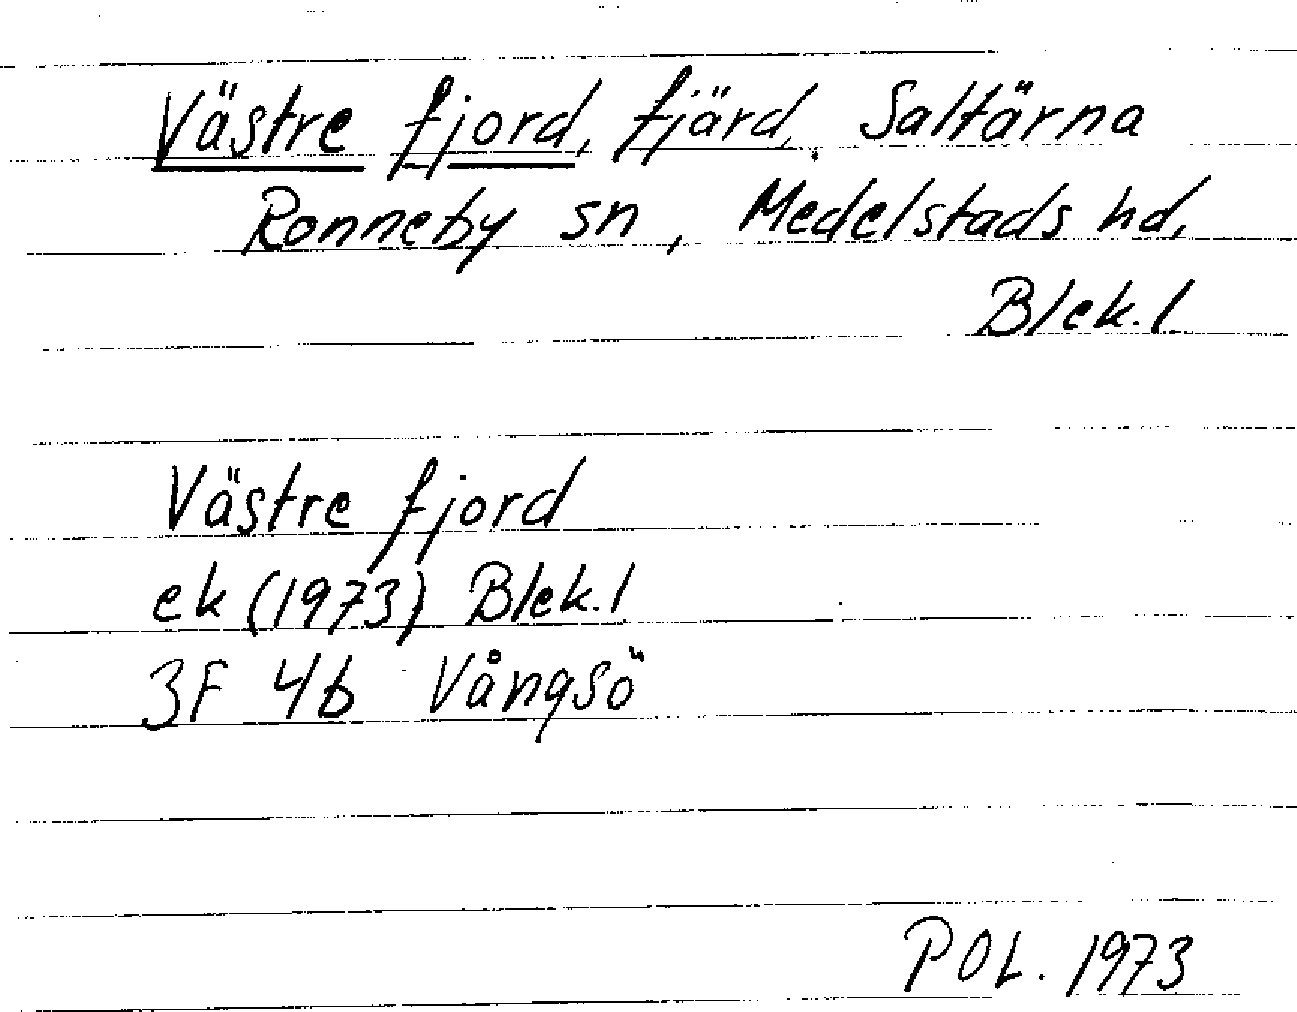 Västre fjord, fjärd, Saltärna
Ronneby sn, Medelstads hd,
Blek. l
Västre fjord
ek (1973) Blek. l
3F 4b Vångsö
POL. 1973